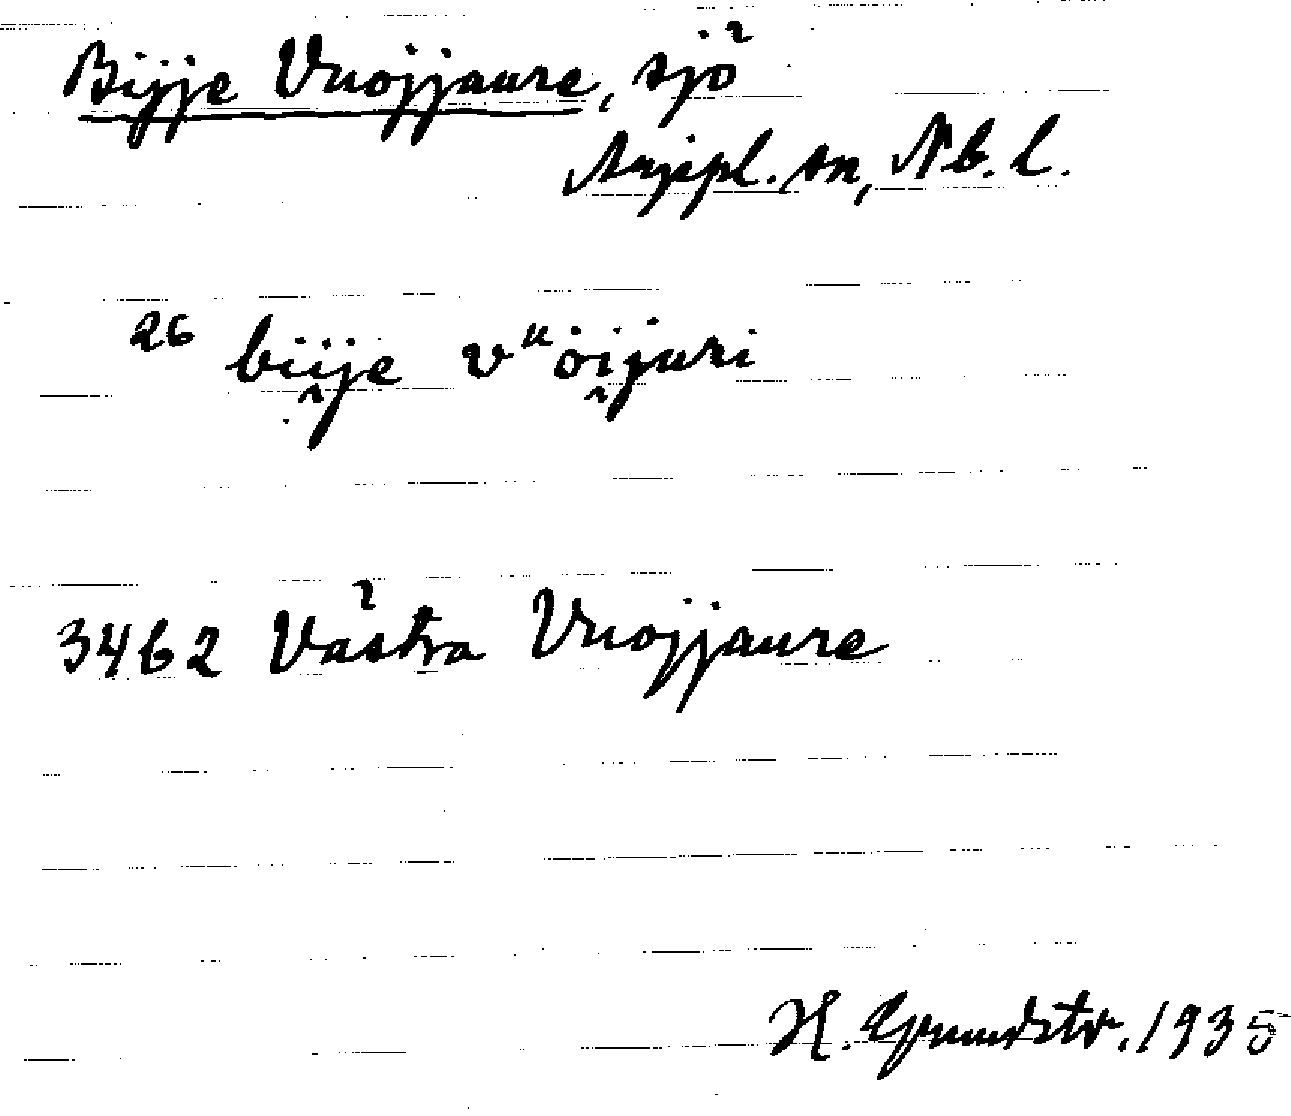 Bijje Vuojjaure, sjö
Arjepl. sn, Nb. l.
26 bii̯je vᵘȯi̯juri
3462 Västra Vuojjaure
H. Grundstr. 1935